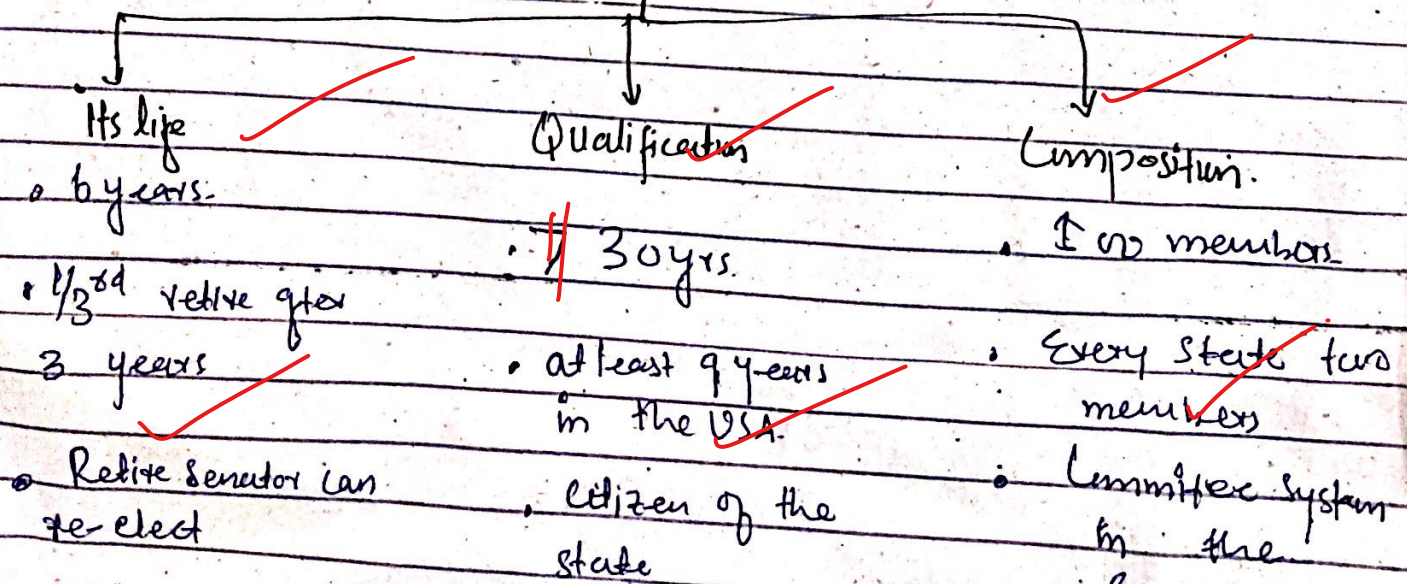 Its life
• 6 years.
• 1/3rd retire after
3 years
• Retire Senator can
re-elect
Qualification
• 30 yrs.
• at least 9 years
in the USA.
• Citizen of the
state
Composition.
• 100 members
• Every State two
members
• Committee System
in the